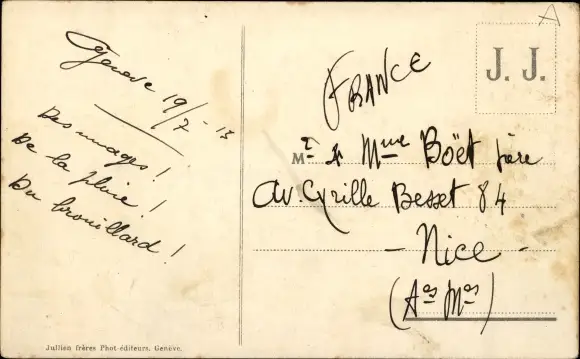 Genève 19/7 - 13
Des nuages !
De la pluie !
Du brouillard !
Jullien frères Phot-éditeurs, Genève.
A
J. J.
FRANCE
Mr & Mme Boët père
Av. Cyrille Besset 84
- Nice -
(Aes Mes)